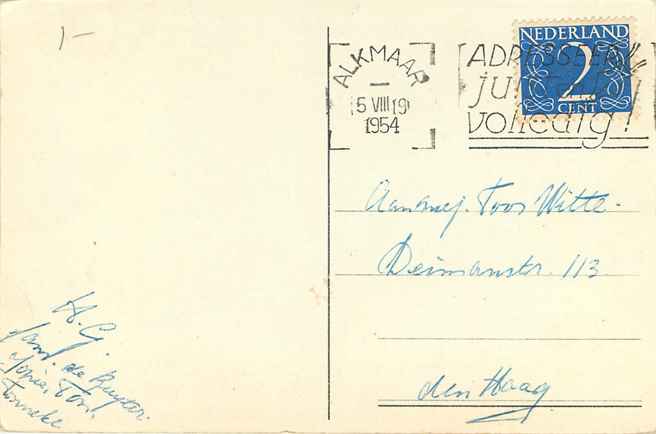 1-
ALKMAAR
5 VIII 19
1954
ADRESSEER
juist en
volledig!
NEDERLAND
2
CENT
Aan mej. Toos Witte.
Deimanstr. 113
den Haag
H.G.
Fam. de Ruyter.
Jopie, Ton,
Tonneke